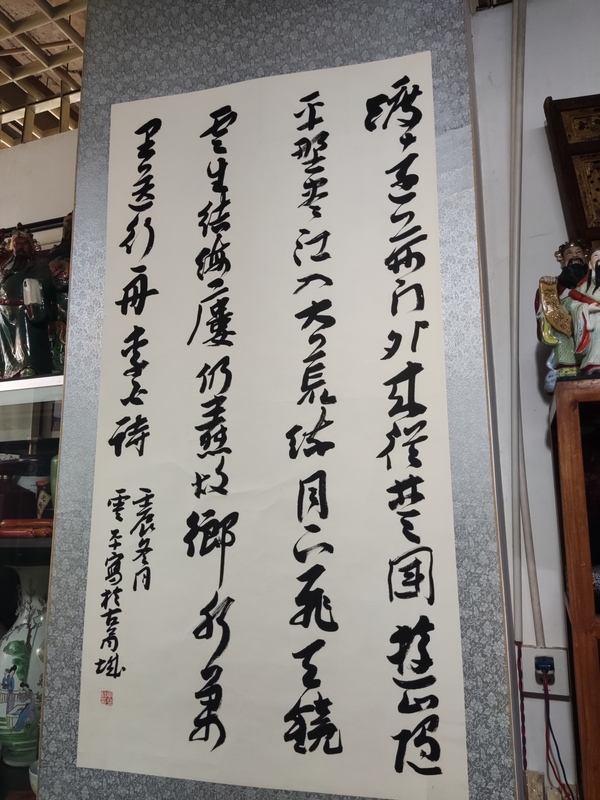 渡遠荊門外來從楚國遊山隨
平野盡江入大荒流月下飛天鏡
雲生結海樓仍憐故鄉水萬
里送行舟李白詩
壬辰冬月
雲平寫於古荊城